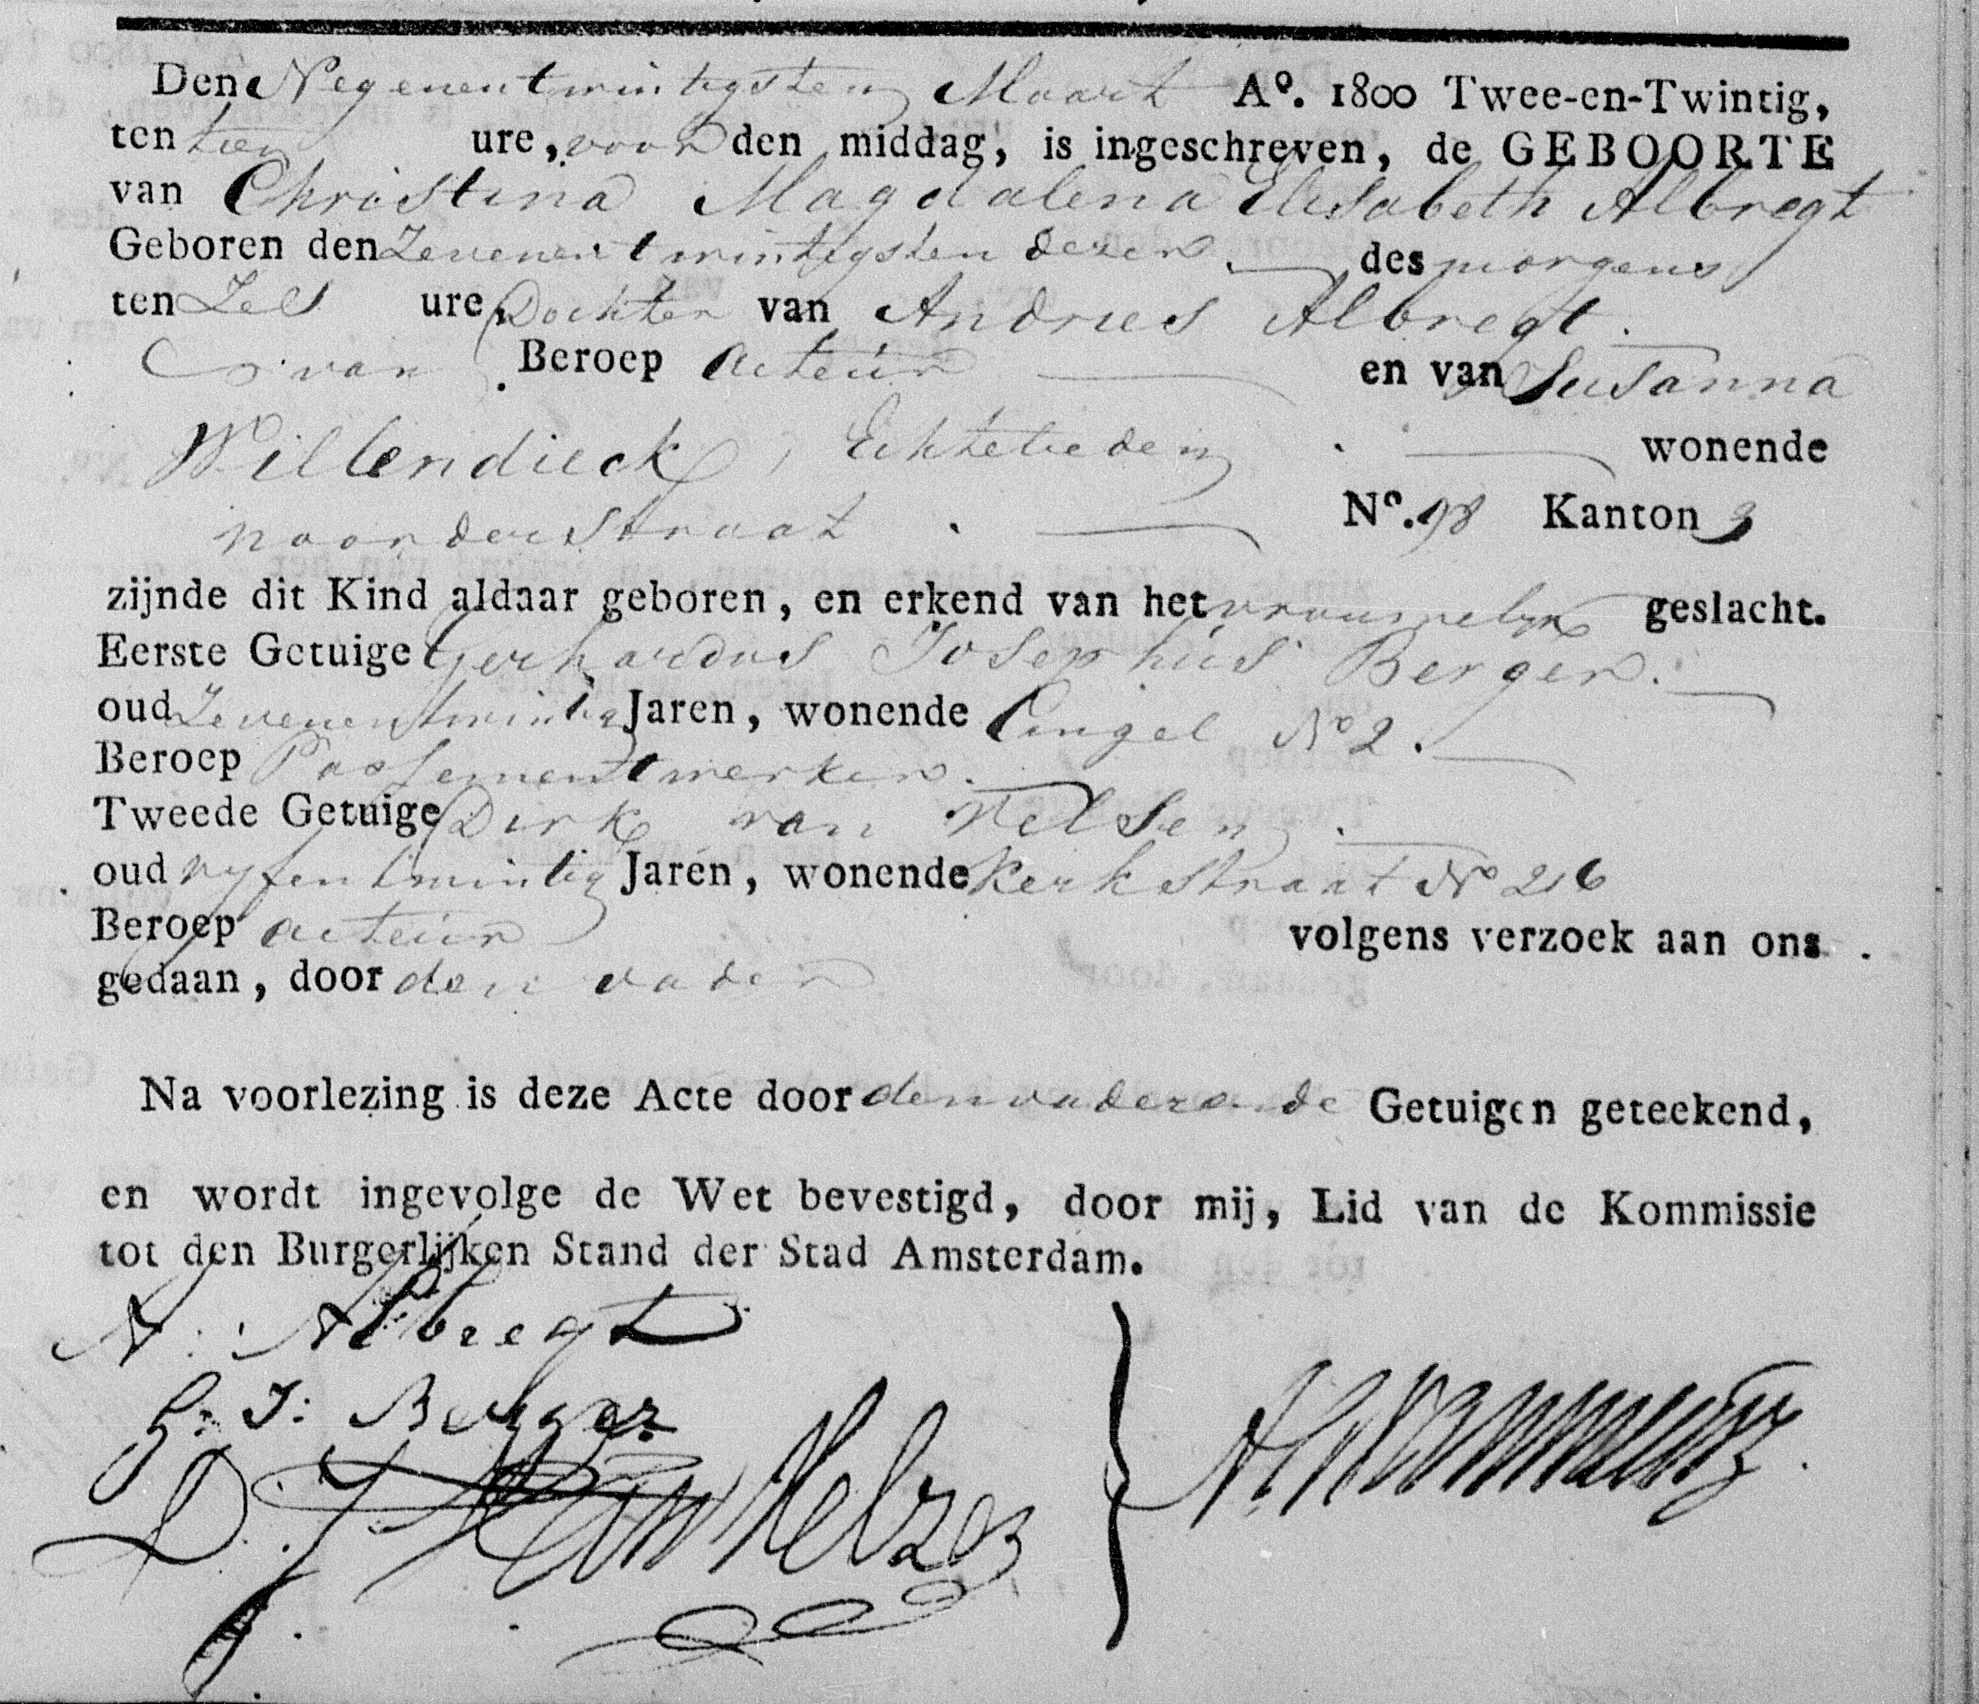 Den Negenentwintigsten Maart Aº. 1800 Twee-en-Twintig,
ten tien ure, voor den middag, is ingeschreven, de GEBOORTE
van Christina Magdalena Elisabeth Albregt
Geboren den Zevenentwintigsten dezer des morgens
ten Zes ure, Dochter van Andries Albregt.
van Beroep acteur en van Susanna
Willendieck, Echtelieden wonende
noorderstraat. Nº. 98 Kanton 3
zijnde dit Kind aldaar geboren, en erkend van het vrouwelyk geslacht.
Eerste Getuige Gerhardus Josephus Berger.
oud Zevenentwintig Jaren, wonende Cingel Nº 2.
Beroep Passementwerker.
Tweede Getuige Dirk van Velsen.
oud vyfentwintig Jaren, wonende Kerkstraat Nº 216
Beroep acteur volgens verzoek aan ons
gedaan, door den vader
Na voorlezing is deze Acte door den vader en de Getuigen geteekend,
en wordt ingevolge de Wet bevestigd, door mij, Lid van de Kommissie
tot den Burgerlijken Stand der Stad Amsterdam.
A. Albregt
G. J: Berger
D. J van Velzen